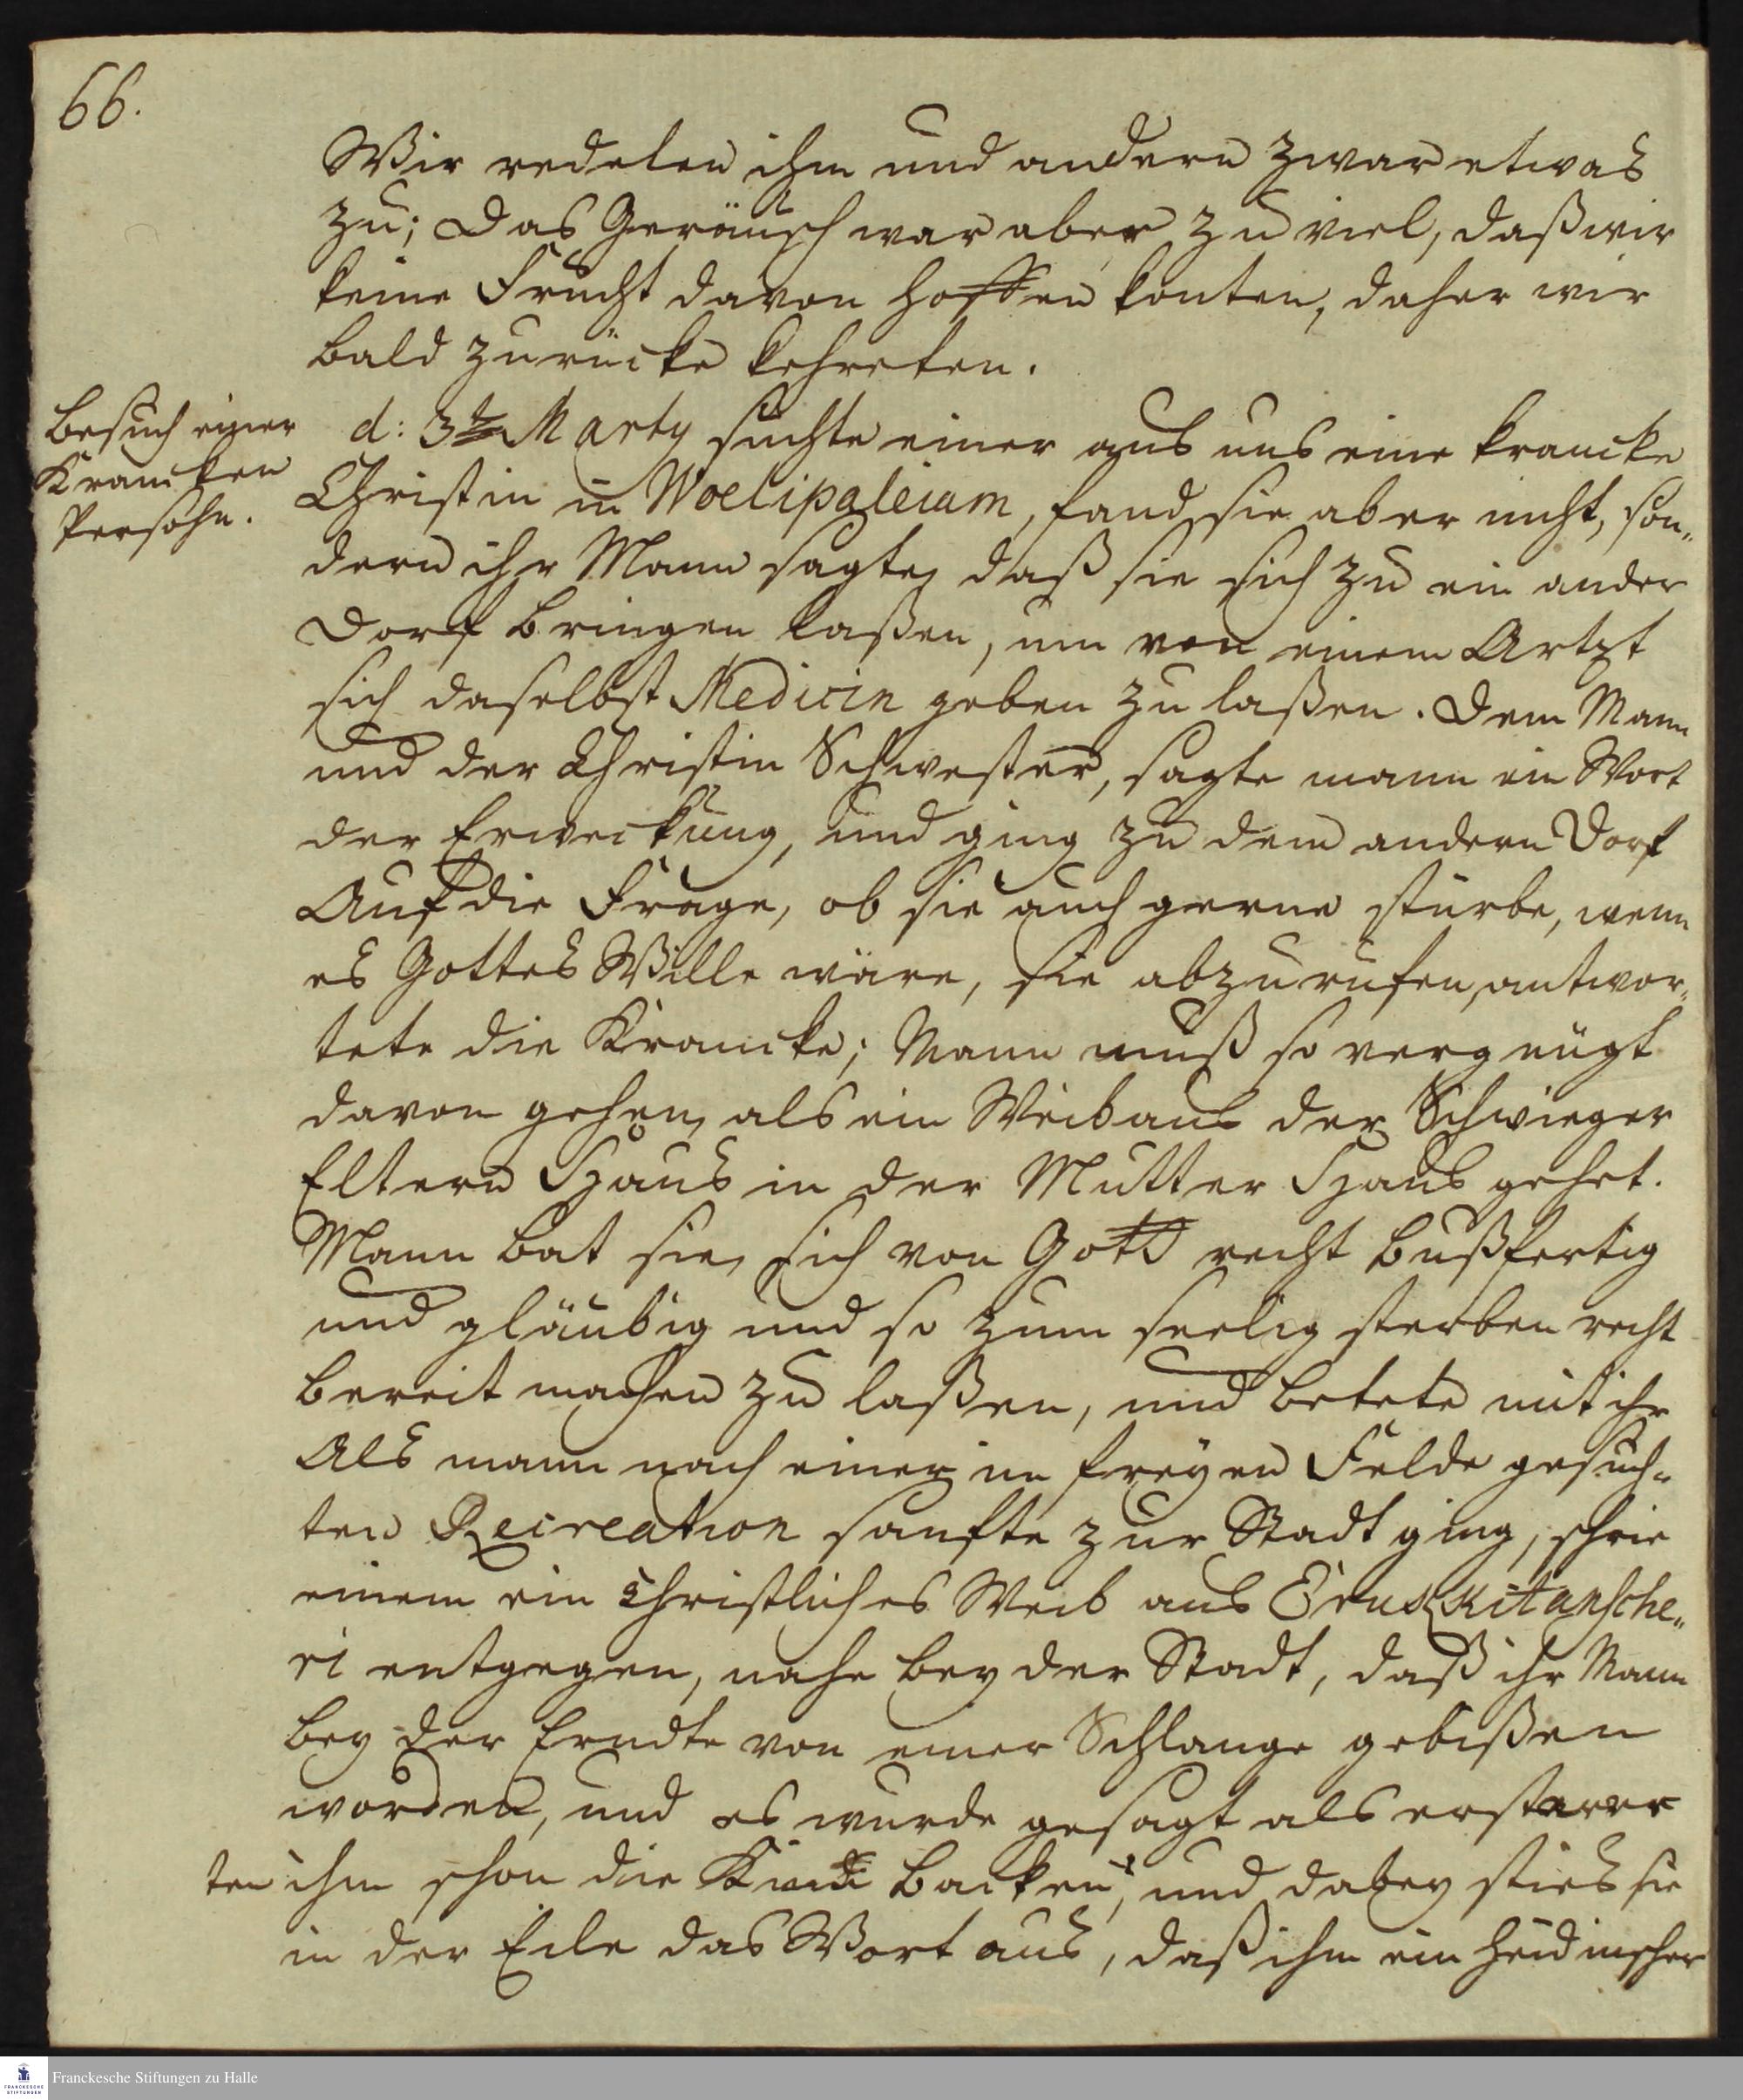 66.
Wir redeten ihm und andern zwar etwas
zu; Das Geräusch war aber zu viel, daß wir
keine Frucht davon hoffen konten, daher wir
bald zurücke kehreten.
Besuch einer
Krancken
Persohn.
d: 3ten Marty suchte einer aus uns eine krancke
Christin in Woelipaleiam, fand sie aber nicht, son„
dern ihr Mann sagte, daß sie sich zu ein ander
Dorf bringen laßen, um von einem Artzt
sich daselbst Medicin geben zu laßen. Dem Mann
und der Christin Schwester, sagte mann ein Wort
der Erweckung, und ging zu dem andern Dorf
Auf die Frage, ob sie auch gerne stürbe, wenn
es Gottes Wille wäre, sie abzurufen, antwor„
tete die Krancke; Mann muß so vergnügt
davon gehen, als ein Weib aus der Schwieger
Eltern Hauß in der Mutter Hauß gehet.
Mann bat sie, sich von Gott recht bußfertig
und gläubig und so zum seelig sterben recht
bereit machen zu laßen, und betete mit ihr
Als mann nach einer im freyen Felde gesuch„
ten Recreation sanfte zur Stadt ging, schrie
einem ein Christliches Weib aus Erukkitansche„
ri entgegen, nahe bey der Stadt, daß ihr Mann
bey der Erndte von einer Schlange gebißen
worden, und es wurde gesagt als erstarre
ten ihm schon die Kinn Backen, und dabey sties sie
in der Eile das Wort aus, daß ihm ein Heidnischer
Franckesche Stiftungen zu Halle
FRANCKESCHE
STIFTUNGEN